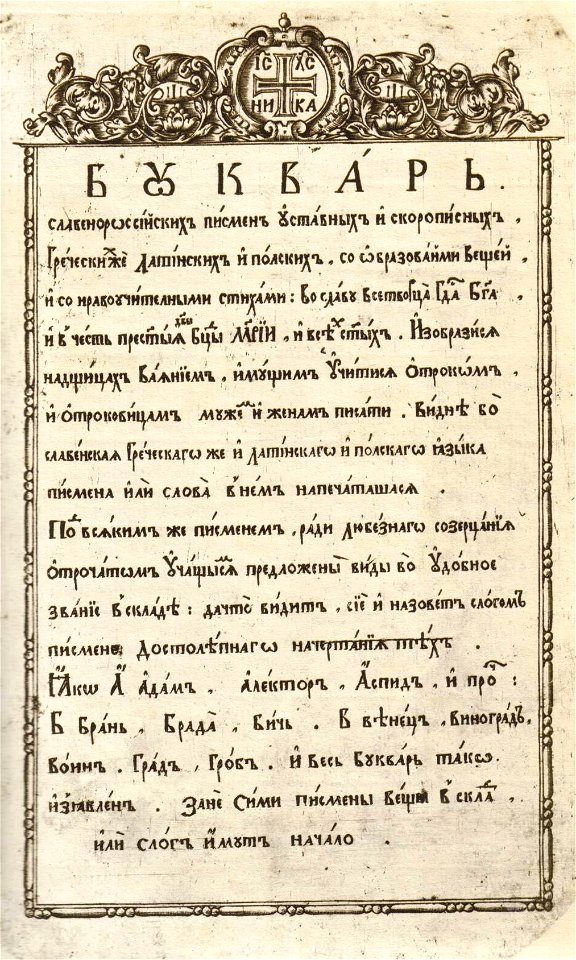 ІС ХС
НИ КА
БꙊКВА́РЬ.
славенорѡссі́йскихъ пи́сменъ ᲂу҆ста́вныхъ и҆ скоропи́сныхъ,
Гре́ческихже Лати́нскихъ и҆ по́лскихъ, со ѡ҆бразова́нїѧми веще́й,
и҆ со нравоучи́телными стиха́ми: Во сла́ву Всетворца̀ Гдⷭ҇а Бг҃а
и҆ в че́сть прест҃ы́ѧ дв҃ы Бцⷣы МР҃І́И, и҆ всѣ́хъ ст҃ы́хъ. И҆зобрази́сѧ
на дщи́цахъ ваѧ́нїемъ, и҆мꙋ́щимъ ᲂу҆чи́тисѧ ѻ҆трокѡ́мъ,
и҆ ѻ҆трокови́цамъ мꙋже́мъ и҆ жена́мъ писа́ти. Ви́днѣ бо
славе́нскаѧ Гре́ческагѡ же и҆ лати́нскагѡ и҆ по́лскагѡ ꙗ҆зы́ка
пи́смена и҆лѝ слова̀ в не́мъ напеча́ташасѧ.
Под всѧ́кимъ же пи́сменемъ, ра́ди любе́знагѡ созерца́нїѧ
ѻ҆троча́тѡмъ ᲂу҆ча́щымсѧ предложены̀ ви́ды во ᲂу҆до́бное
зва́нїе в скла́дѣ: да что̀ ви́дитъ, сїѐ и҆ назове́тъ сло́гомъ
пи́смене, достолѣ́пнагѡ начерта́нїѧ тѣ́хъ.
Ꙗ҆́кѡ А҆ А҆да́мъ, А҆ле́кторъ, А҆́спидъ, и҆ про́ч:
Б Бра́нь, Брада̀, Би́чь. В Вѣне́цъ, Виногра́дъ,
Во́инъ. Гра́дъ, Гро́бъ. и҆ весь Бꙋква́рь та́кѡ
и҆з̾ѧвле́нъ. Занѐ си́ми пи́смены ве́щы в скла́дъ,
и҆лѝ сло́гъ и҆́мꙋтъ нача́ло.